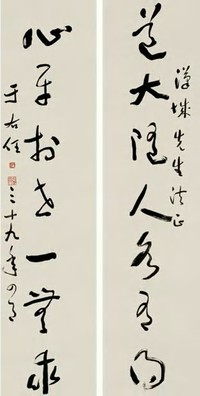 道大隨人各有
先生法正
心平於世一無求
三十九年四月
于右任